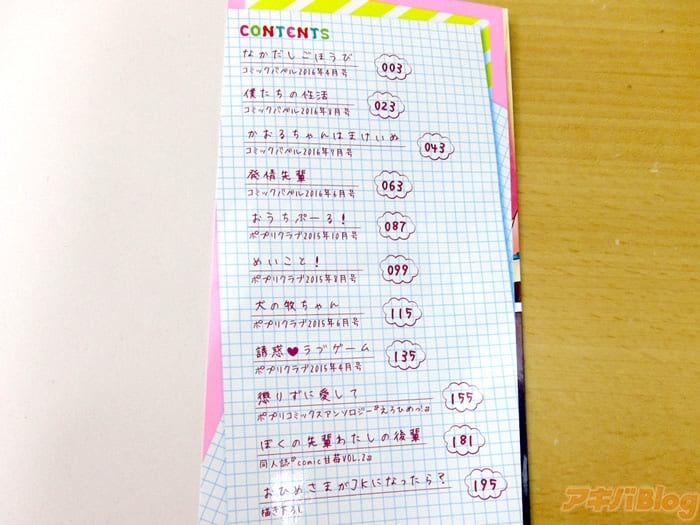 CONTENTS
なかだしごほうび
コミックバベル2016年4月号
003
僕たちの性活
コミックバベル2016年8月号
023
かおるちゃんはまけいぬ
コミックバベル2016年9月号
043
発情先輩
コミックバベル2016年6月号
063
おうちぷーる!
ポプリクラブ2015年10月号
087
めいこと!
ポプリクラブ2015年8月号
099
犬の牧ちゃん
ポプリクラブ2015年6月号
115
誘惑♥ラブゲーム
ポプリクラブ2015年4月号
135
懲りずに愛して
ポプリコミックスアンソロジー『えろひめっ』
155
ぼくの先輩わたしの後輩
同人誌『comic甘苺VOL.2』
181
おひめさまがJKになったら?
描き下ろし
195
アキバBlog